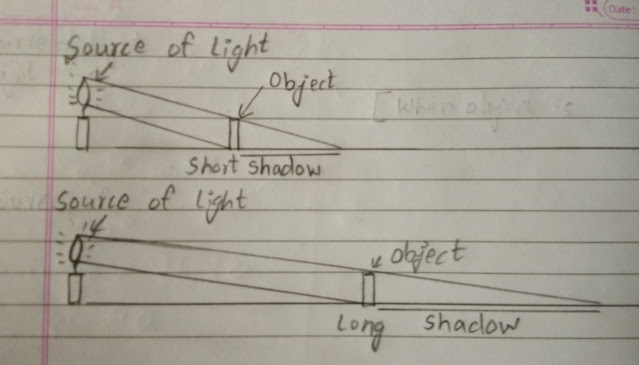 Date:
Source of light
Object
[When object is
Short shadow
Source of light
Object
Long shadow